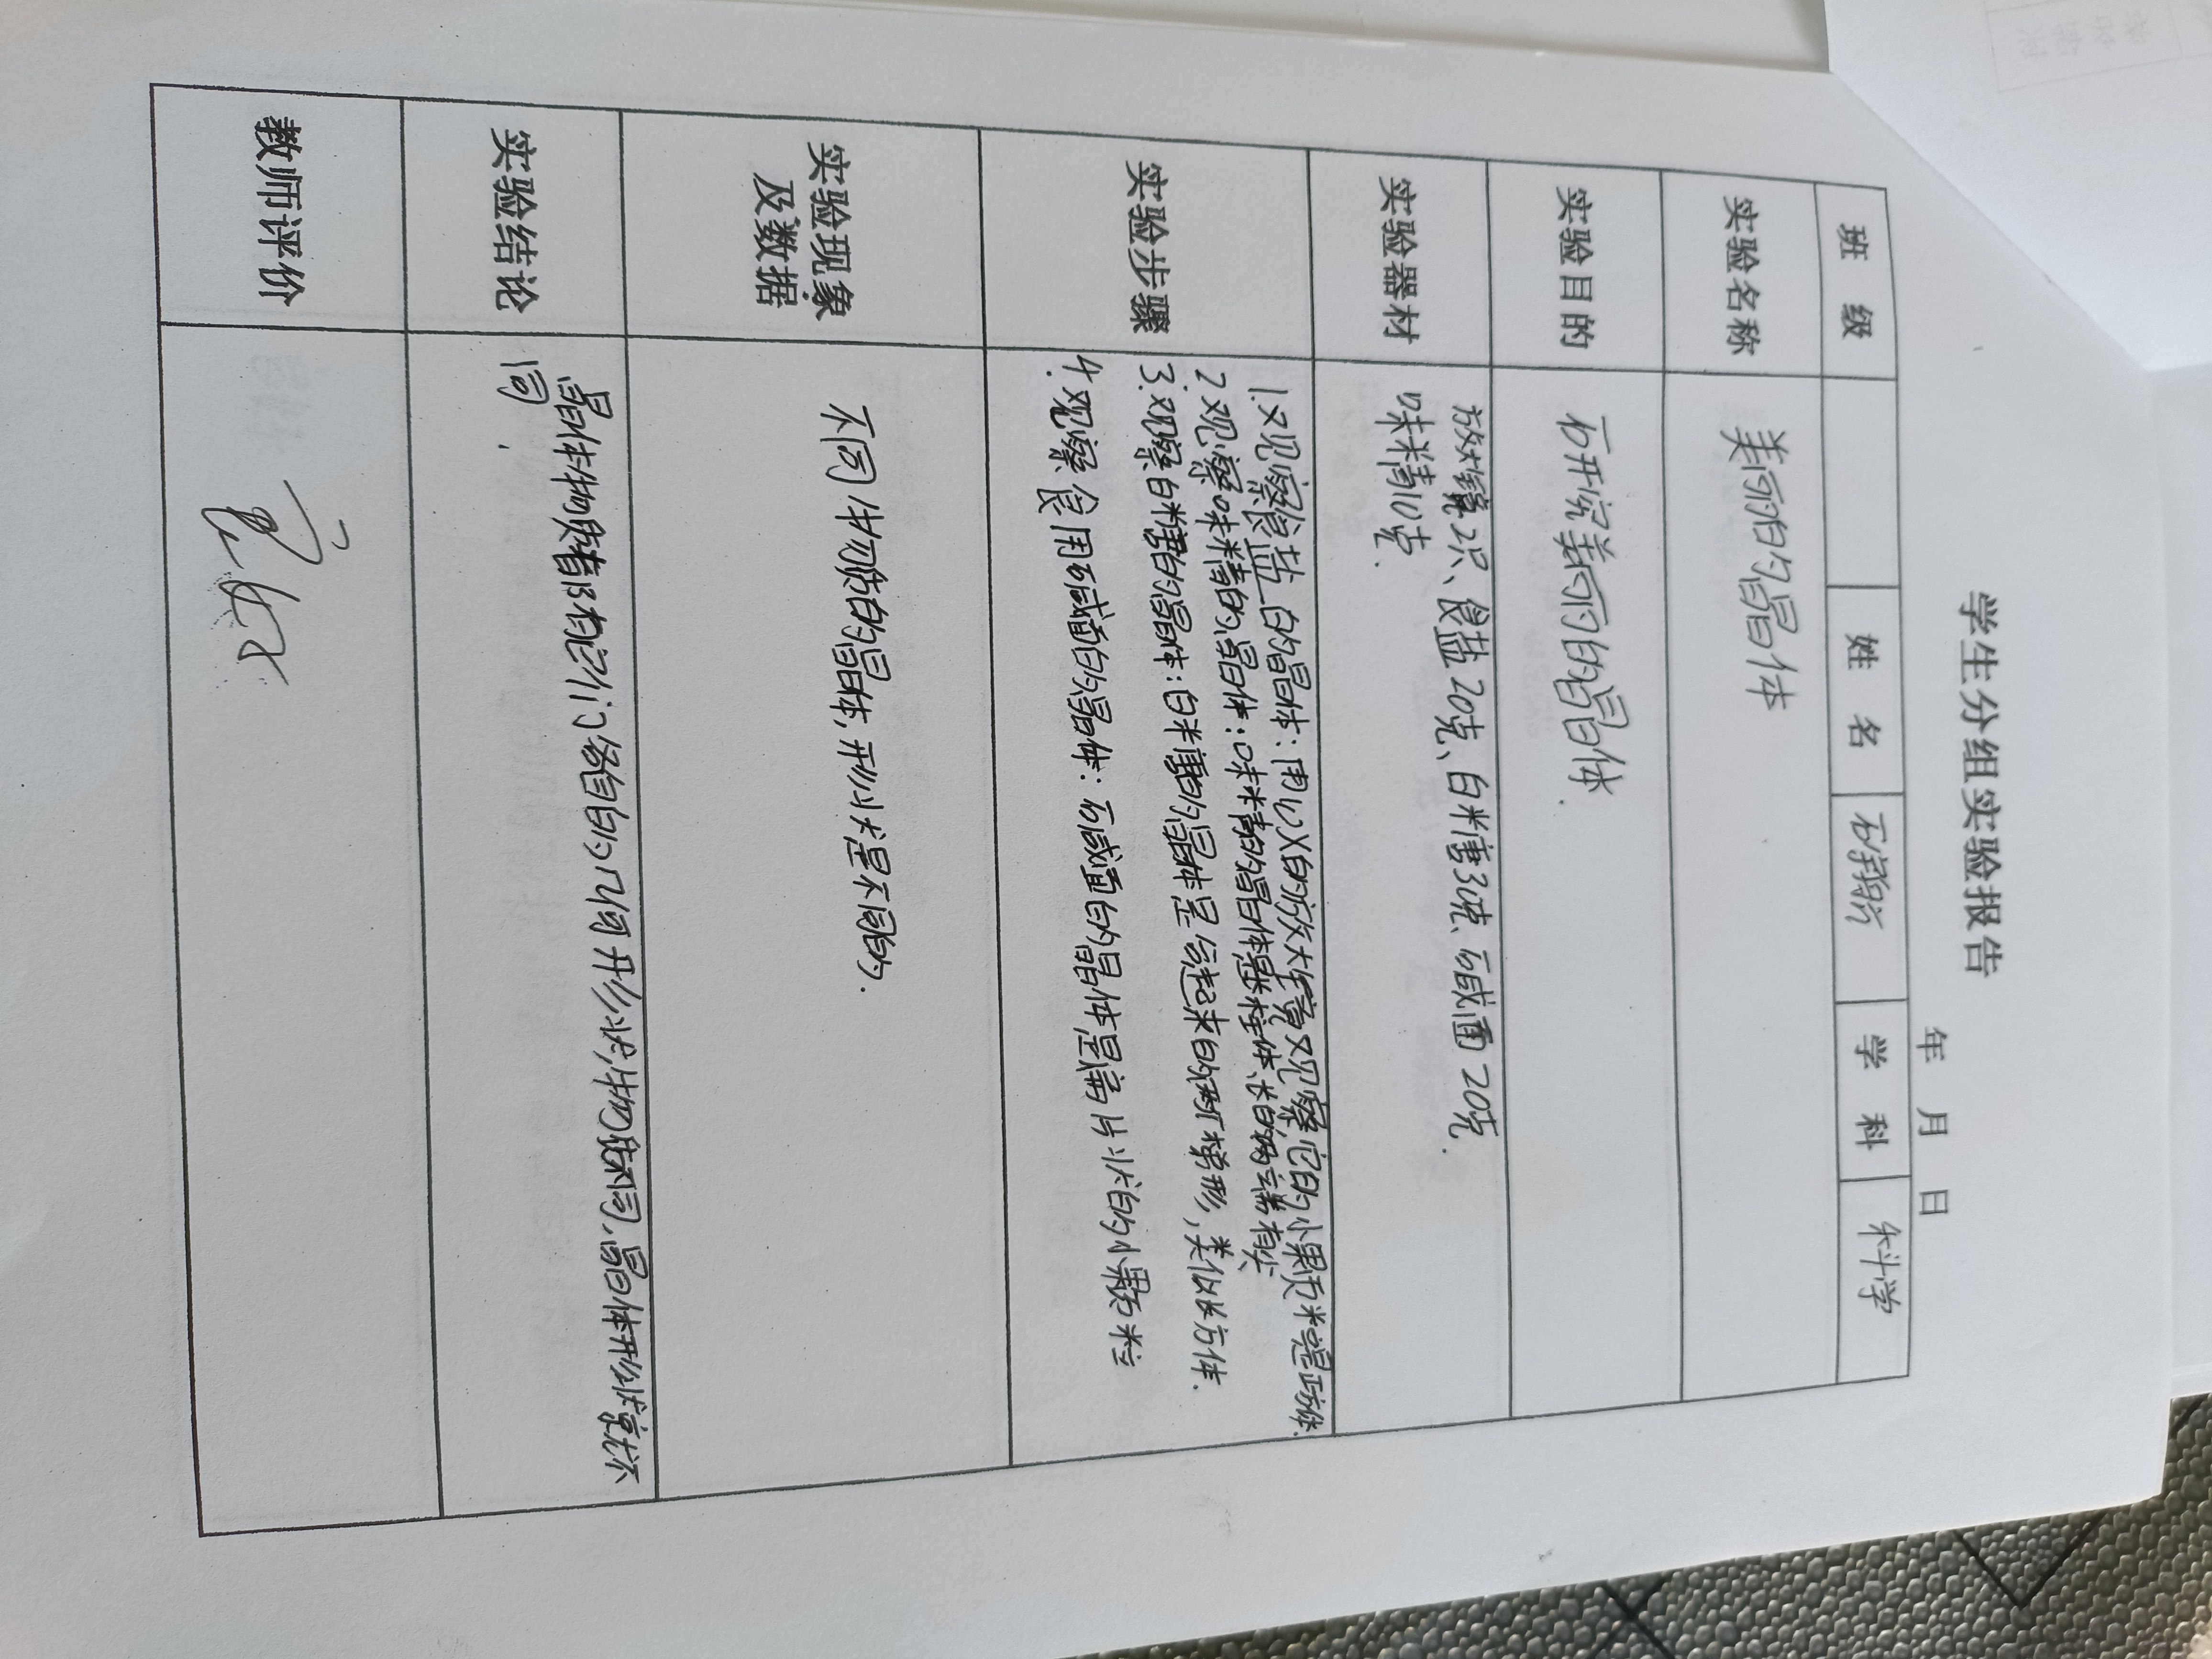 学生分组实验报告
年 月 日
班 级 姓 名 石 学 科 科学
实验名称 美丽的晶体
实验目的 研究美丽的晶体.
实验器材 放大镜2只、食盐20克、白糖30克、碱面20克.
味精10克.
实验步骤 1.观察食盐的晶体:用10X的放大镜观察它的小颗粒是正方体.
2观察味精的晶体:味精的晶体是柱体、长的两端有尖
3.观察白糖的晶体:白糖的晶体是立起来的梯形,类似长方体.
4.观察食用碱面的晶体:碱面的晶体是薄片状的小颗粒
实验现象
及数据 不同物质的晶体,形状是不同的.
实验结论 晶体物质都有它们各自的几何形状,物质不同,晶体形状就不
同.
教师评价